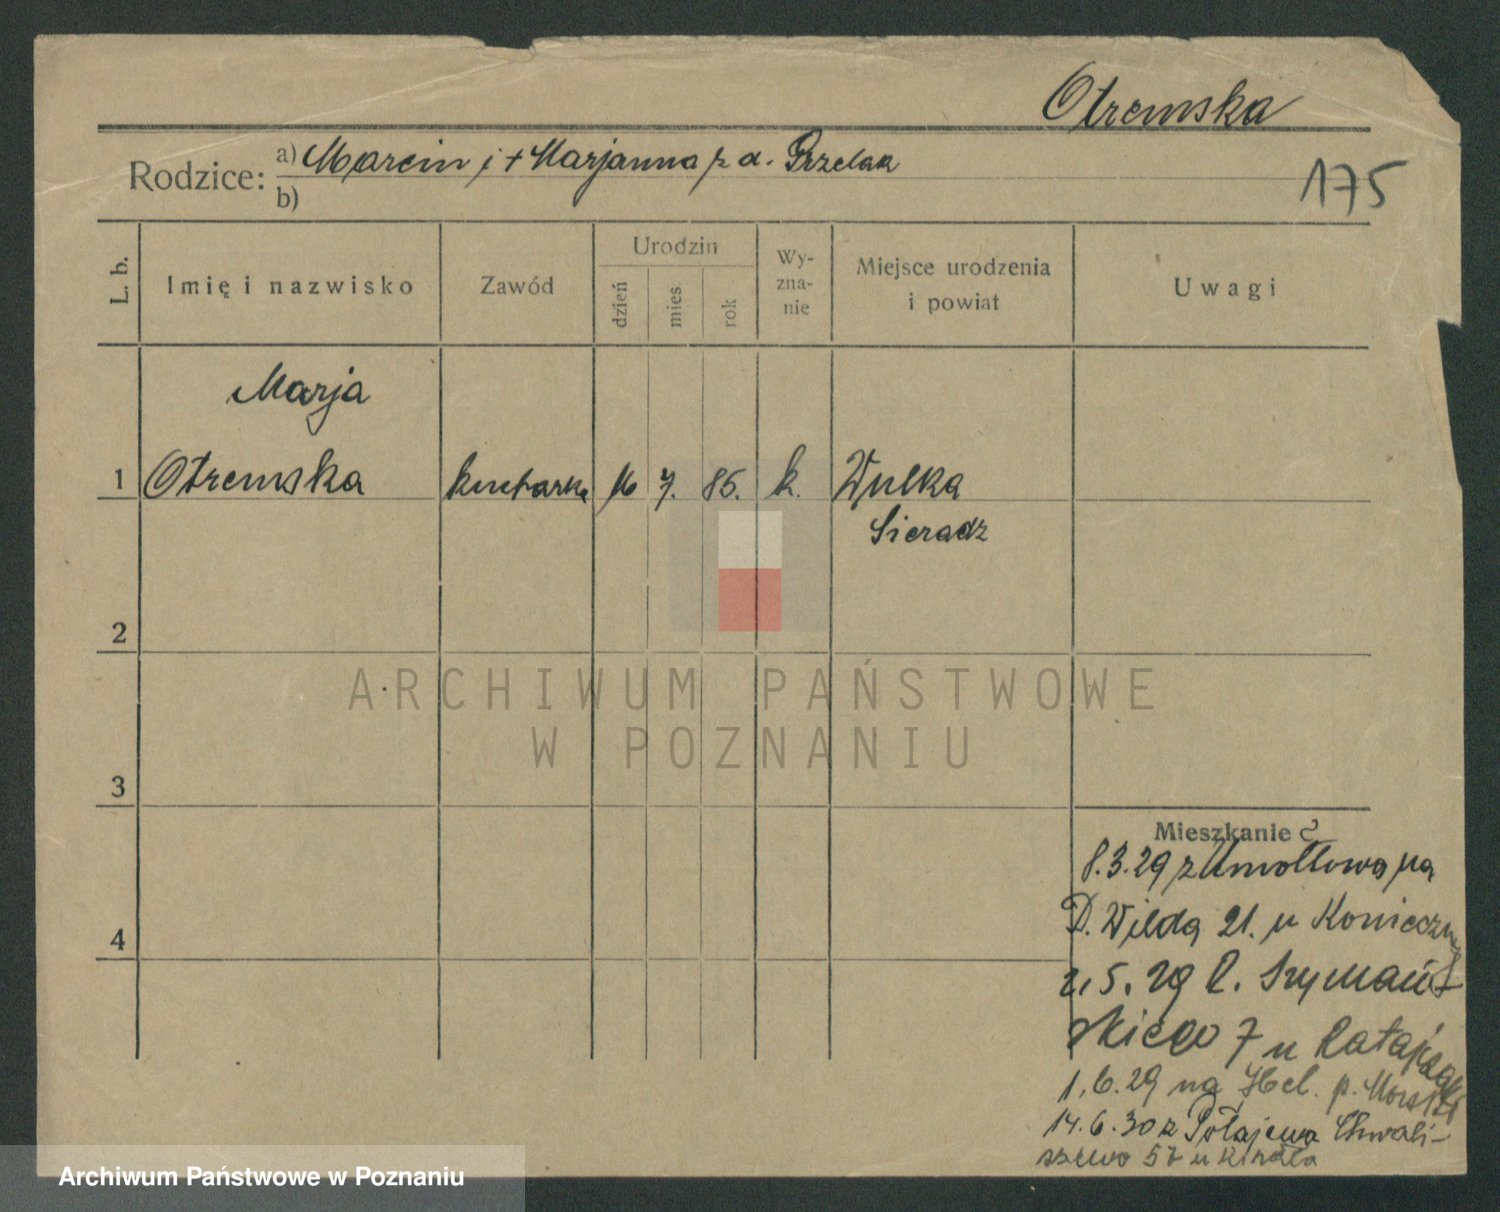 Otremska
Rodzice: a) Marcin i + Marjanna z d. Przelak
b)
175
L. b.
Imię i nazwisko
Zawód
Urodzin
dzień
mies.
rok
Wy-
zna-
nie
Miejsce urodzenia
i powiat
Uwagi
Marja
1 Otremska kucharka 16 7. 85. k. Wulka
Sieradz
2
3
4
Mieszkanie
8.3.29 z na
D. Wilda 21. u Konieczny
2.5.29 Szymań-
skiego 7 u Ratajczak
1.6.29 na Hel. p. Morski
14.6.30 z Połajewa Chwali-
szewo 57 u
ARCHIWUM PAŃSTWOWE
W POZNANIU
Archiwum Państwowe w Poznaniu